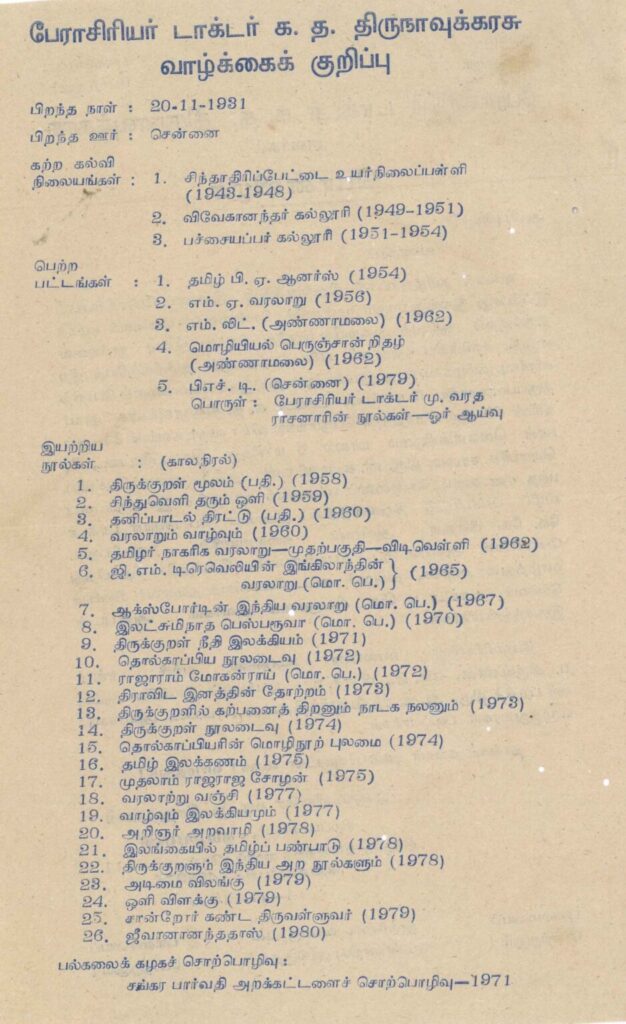 பேராசிரியர் டாக்டர் க. த. திருநாவுக்கரசு
வாழ்க்கைக் குறிப்பு
பிறந்த நாள் : 20-11-1931
பிறந்த ஊர் : சென்னை
கற்ற கல்வி
நிலையங்கள் : 1. சிந்தாதிரிப்பேட்டை உயர்நிலைப்பள்ளி
(1943-1948)
2. விவேகானந்தர் கல்லூரி (1949-1951)
3. பச்சையப்பர் கல்லூரி (1951-1954)
பெற்ற
பட்டங்கள் : 1. தமிழ் பி. ஏ. ஆனர்ஸ் (1954)
2. எம். ஏ. வரலாறு (1956)
3. எம். லிட். (அண்ணாமலை) (1962)
4. மொழியியல் பெருஞ்சான்றிதழ்
(அண்ணாமலை) (1962)
5. பிஎச். டி. (சென்னை) (1979)
பொருள் : பேராசிரியர் டாக்டர் மு. வரத
ராசனாரின் நூல்கள்—ஓர் ஆய்வு
இயற்றிய
நூல்கள் : (காலநிரல்)
1. திருக்குறள் மூலம் (பதி.) (1958)
2. சிந்துவெளி தரும் ஒளி (1959)
3. தனிப்பாடல் திரட்டு (பதி.) (1960)
4. வரலாறும் வாழ்வும் (1960)
5. தமிழர் நாகரிக வரலாறு—முதற்பகுதி—விடிவெள்ளி (1962)
6. ஜி. எம். டிரெவெலியின் இங்கிலாந்தின்
வரலாறு (மொ. பெ.) } (1965)
7. ஆக்ஸ்போர்டின் இந்திய வரலாறு (மொ. பெ.) (1967)
8. இலட்சுமிநாத பெஸ்பரூவா (மொ. பெ.) (1970)
9. திருக்குறள் நீதி இலக்கியம் (1971)
10. தொல்காப்பிய நூலடைவு (1972)
11. ராஜாராம் மோகன்ராய் (மொ. பெ.) (1972)
12. திராவிட இனத்தின் தோற்றம் (1973)
13. திருக்குறளில் கற்பனைத் திறனும் நாடக நலனும் (1973)
14. திருக்குறள் நூலடைவு (1974)
15. தொல்காப்பியரின் மொழிநூற் புலமை (1974)
16. தமிழ் இலக்கணம் (1975)
17. முதலாம் ராஜராஜ சோழன் (1975)
18. வரலாற்று வஞ்சி (1977)
19. வாழ்வும் இலக்கியமும் (1977)
20. அறிஞர் அறவாழி (1978)
21. இலங்கையில் தமிழ்ப் பண்பாடு (1978)
22. திருக்குறளும் இந்திய அற நூல்களும் (1978)
23. அடிமை விலங்கு (1979)
24. ஒளி விளக்கு (1979)
25. சான்றோர் கண்ட திருவள்ளுவர் (1979)
26. ஜீவானானந்ததாஸ் (1980)
பல்கலைக் கழகச் சொற்பொழிவு :
சங்கர பார்வதி அறக்கட்டளைச் சொற்பொழிவு—1971